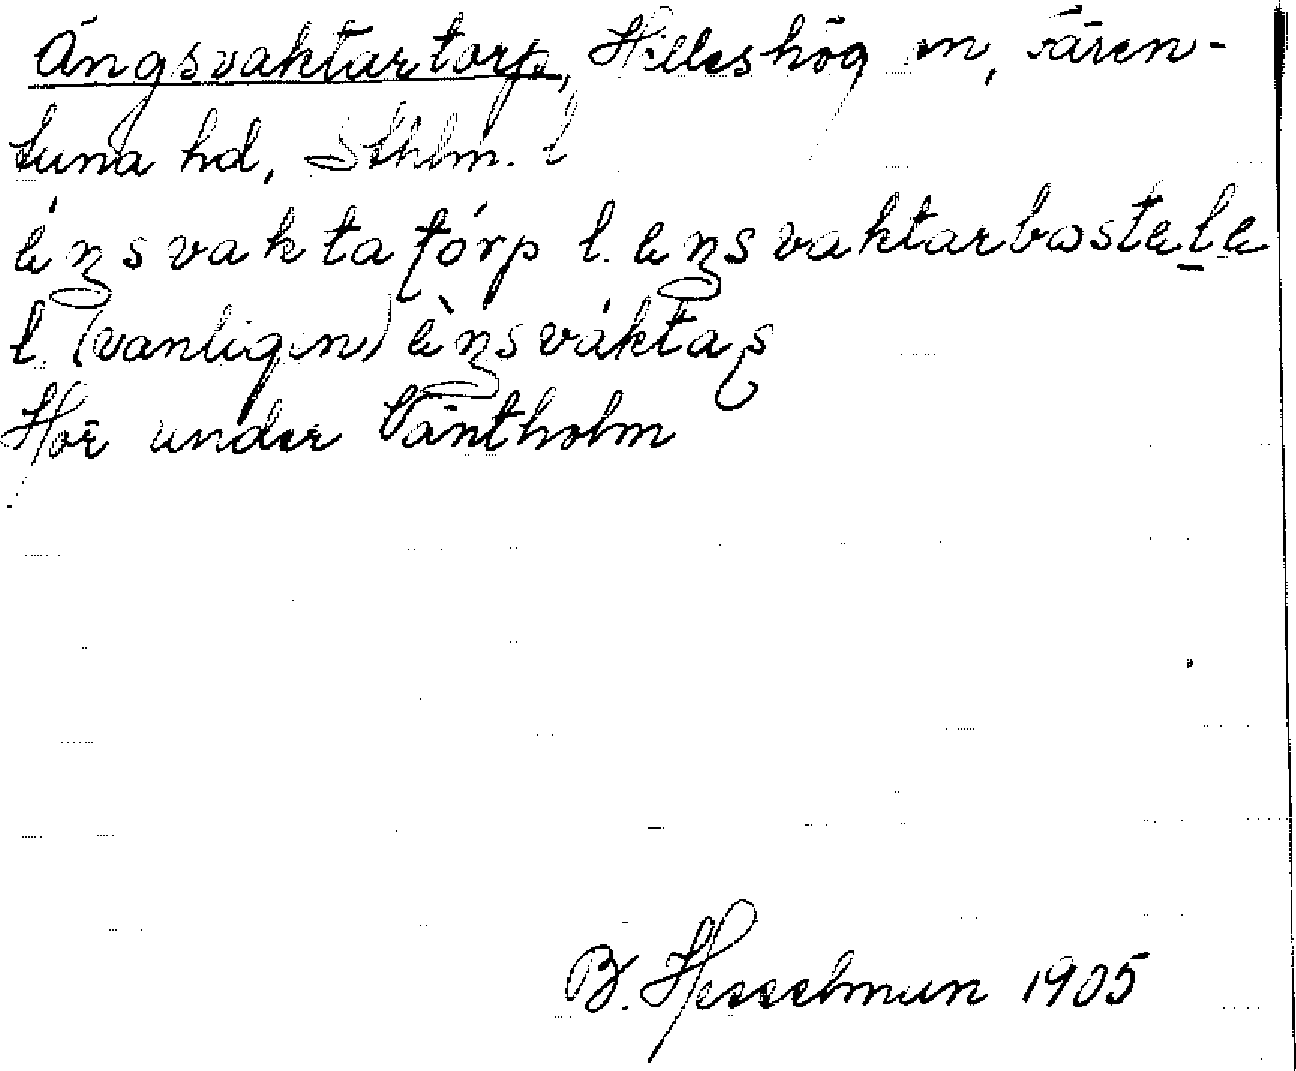 Ängsvaktartorp, Hilleshög sn, Fären-
tuna hd, Sthlm. l
éŋsvaktatórp l. eŋsvaktarbostele
l. (vanligen) èŋsváktas
Hör under Väntholm
B. Hesselman 1905